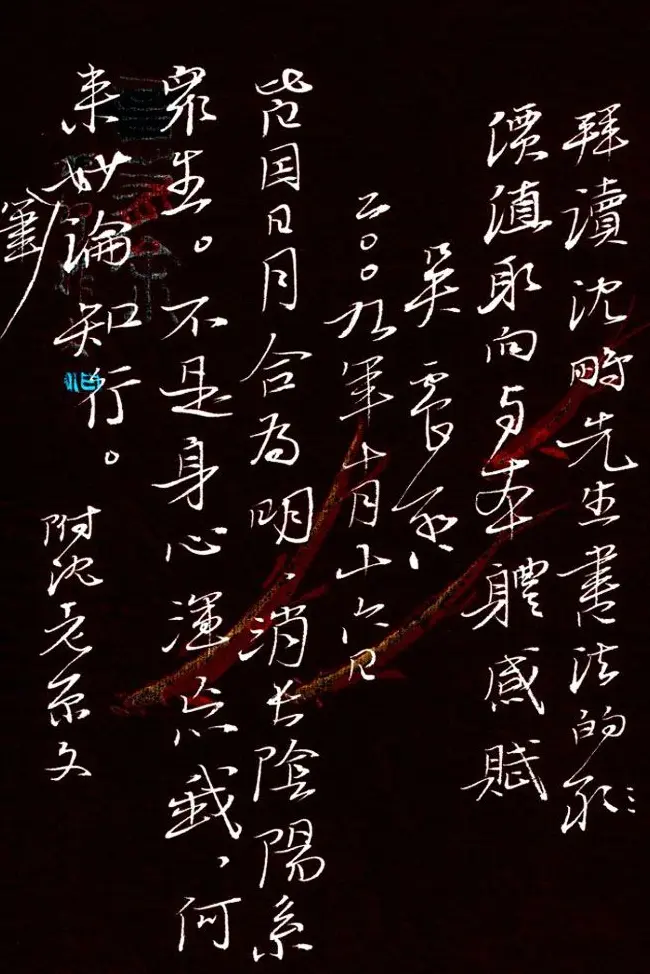 拜讀沈鹏先生書法的取
價值取向与本體感賦
吴震
二〇〇九年十月十六日
皆因日月合為明，消长陰陽系
眾生。不是身心渾忘我，何
来妙論知行。
附沈老原文
筆